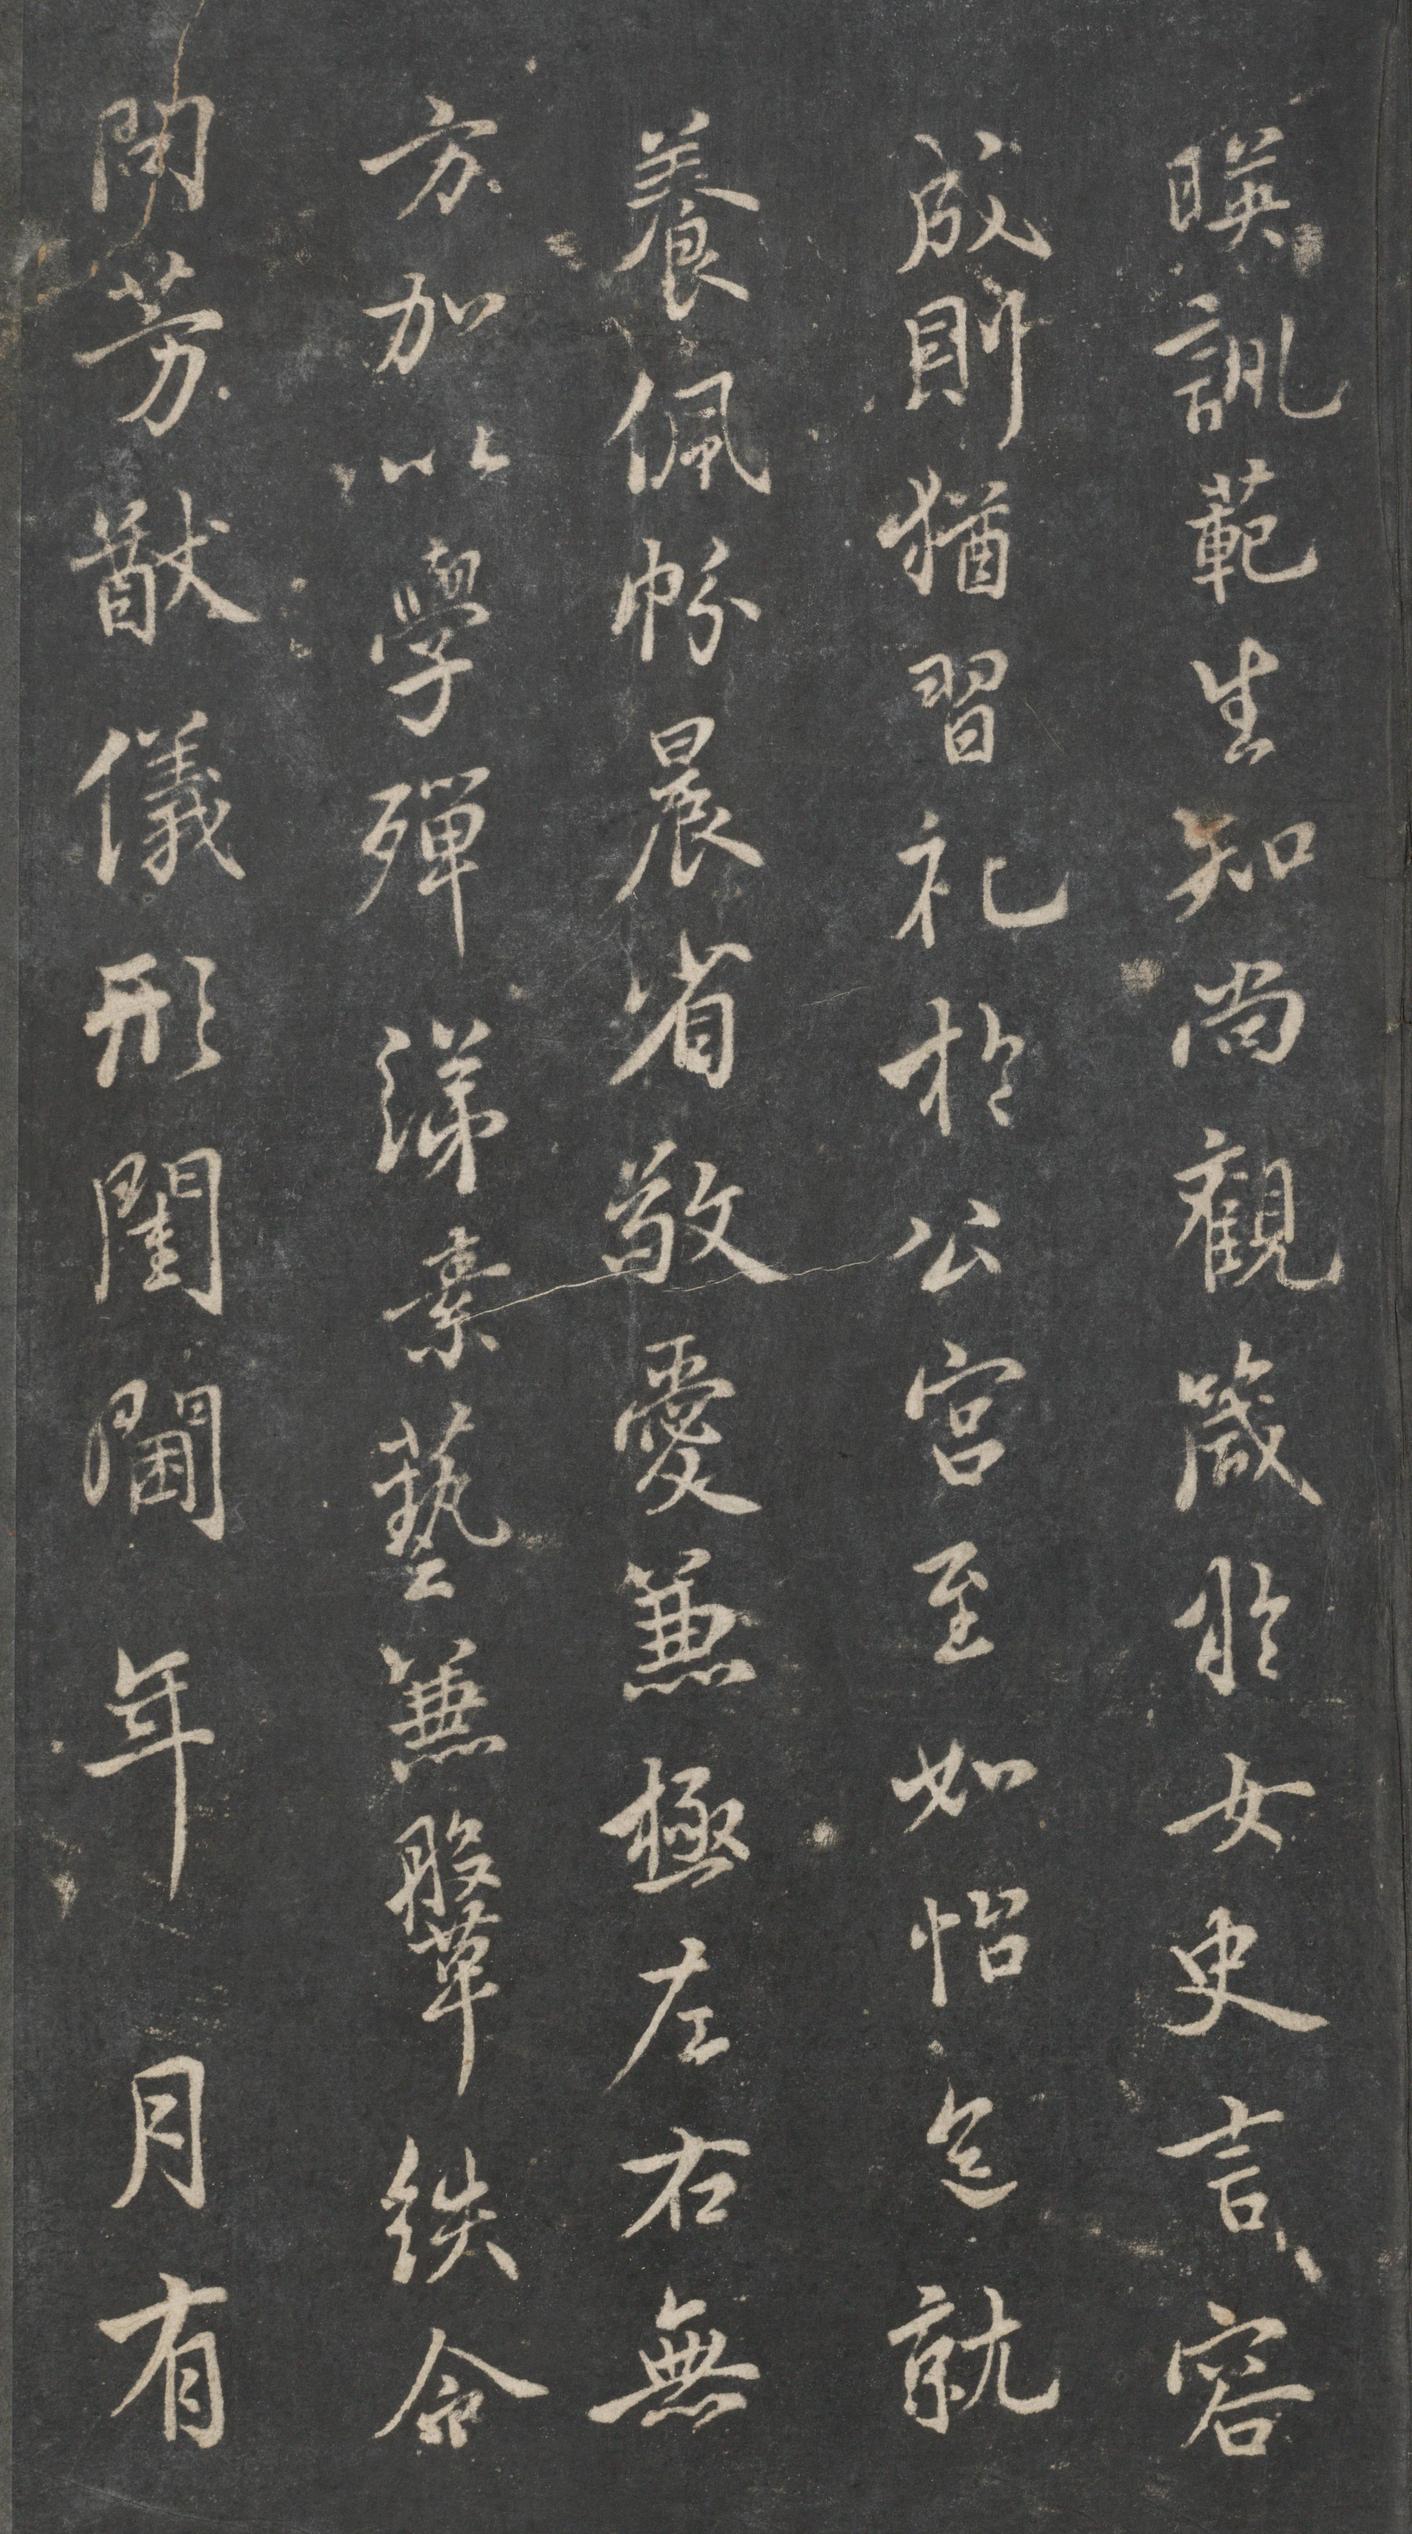 暎訓範生知尚觀箴於女史言容
成則猶習礼於公宮至如怡色就
養佩帉晨省敬愛兼極左右無
方加以學殫綈素藝兼鞶紩令
問芳猷儀形閨閫年月有